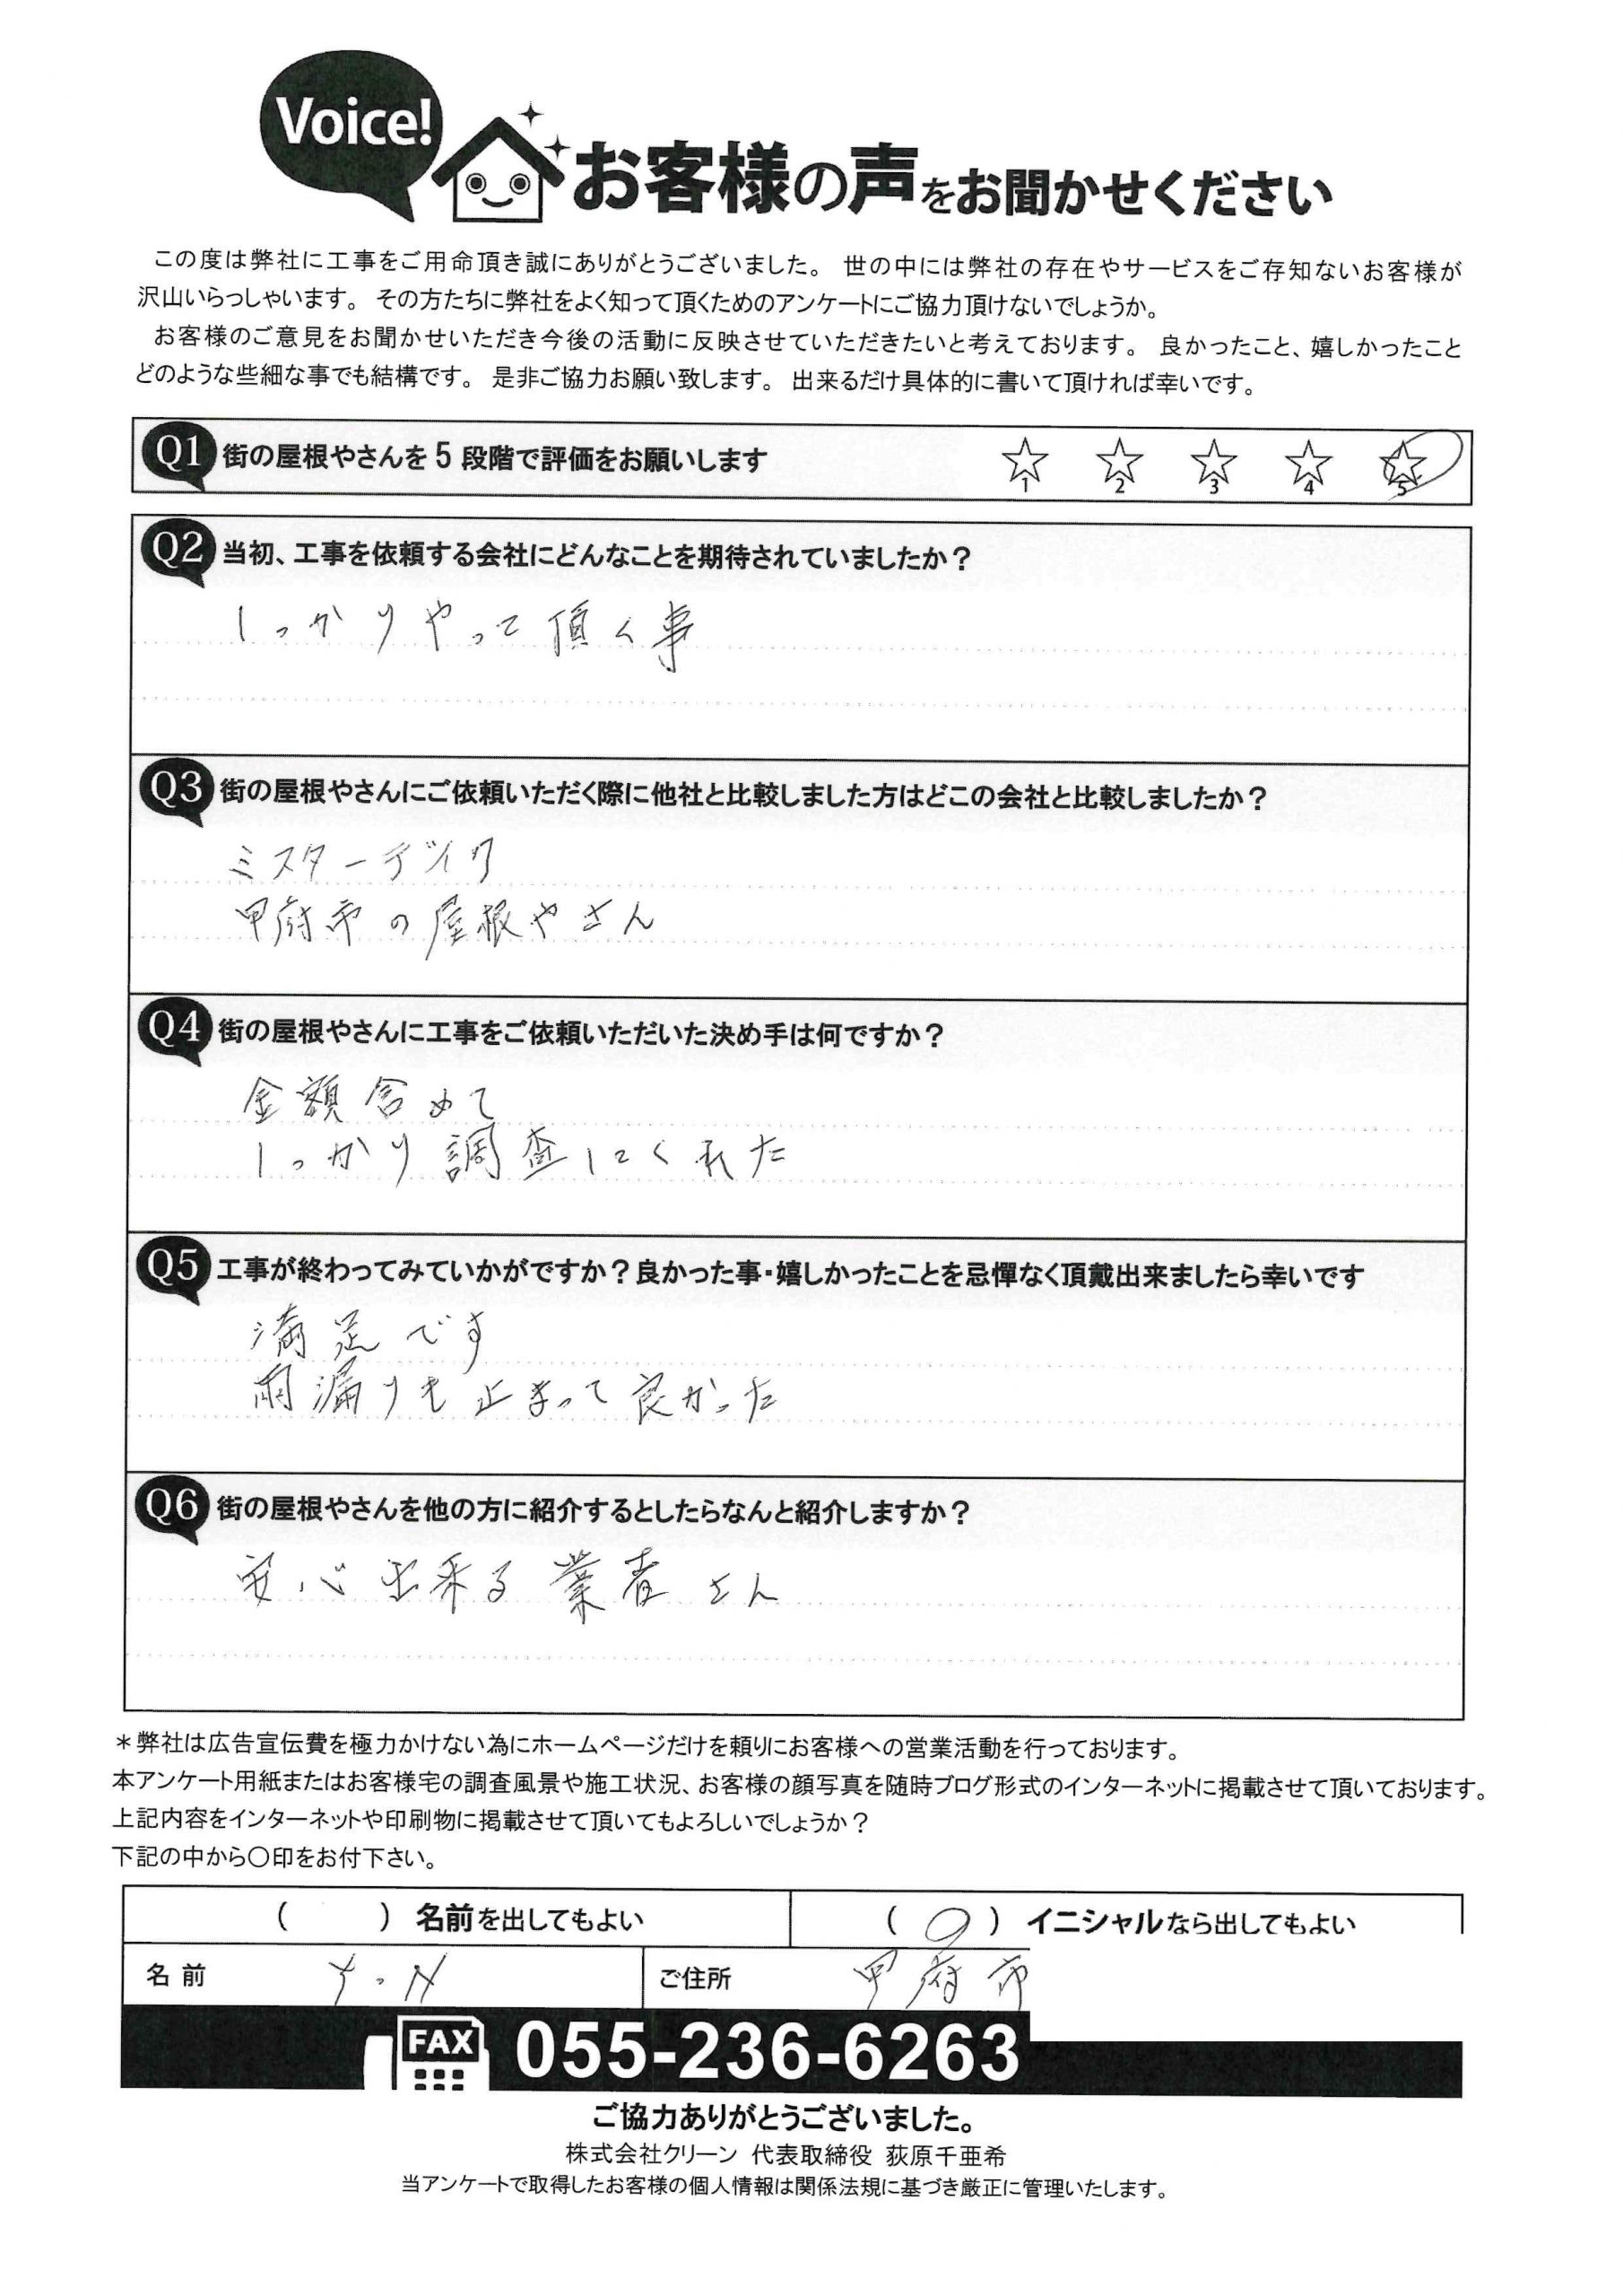 Voice!
お客様の声をお聞かせください
この度は弊社に工事をご用命頂き誠にありがとうございました。 世の中には弊社の存在やサービスをご存知ないお客様が
沢山いらっしゃいます。 その方たちに弊社をよく知って頂くためのアンケートにご協力頂けないでしょうか。
お客様のご意見をお聞かせいただき今後の活動に反映させていただきたいと考えております。 良かったこと、嬉しかったこと
どのような些細な事でも結構です。 是非ご協力お願い致します。 出来るだけ具体的に書いて頂ければ幸いです。
Q1 街の屋根やさんを 5 段階で評価をお願いします ☆1 ☆2 ☆3 ☆4 ☆5
Q2 当初、工事を依頼する会社にどんなことを期待されていましたか？
しっかりやって頂く事
Q3 街の屋根やさんにご依頼いただく際に他社と比較しました方はどこの会社と比較しましたか？
ミスターデイク
甲府市の屋根やさん
Q4 街の屋根やさんに工事をご依頼いただいた決め手は何ですか？
金額含めて
しっかり調査してくれた
Q5 工事が終わってみていかがですか？良かった事・嬉しかったことを忌憚なく頂戴出来ましたら幸いです
満足です
雨漏りも止まって良かった
Q6 街の屋根やさんを他の方に紹介するとしたらなんと紹介しますか？
安心出来る業者さん
＊弊社は広告宣伝費を極力かけない為にホームページだけを頼りにお客様への営業活動を行っております。
本アンケート用紙またはお客様宅の調査風景や施工状況、お客様の顔写真を随時ブログ形式のインターネットに掲載させて頂いております。
上記内容をインターネットや印刷物に掲載させて頂いてもよろしいでしょうか？
下記の中から〇印をお付下さい。
（ ） 名前を出してもよい （ 〇 ） イニシャルなら出してもよい
名前 Y.N ご住所 甲府市
FAX 055-236-6263
ご協力ありがとうございました。
株式会社クリーン 代表取締役 荻原千亜希
当アンケートで取得したお客様の個人情報は関係法規に基づき厳正に管理いたします。